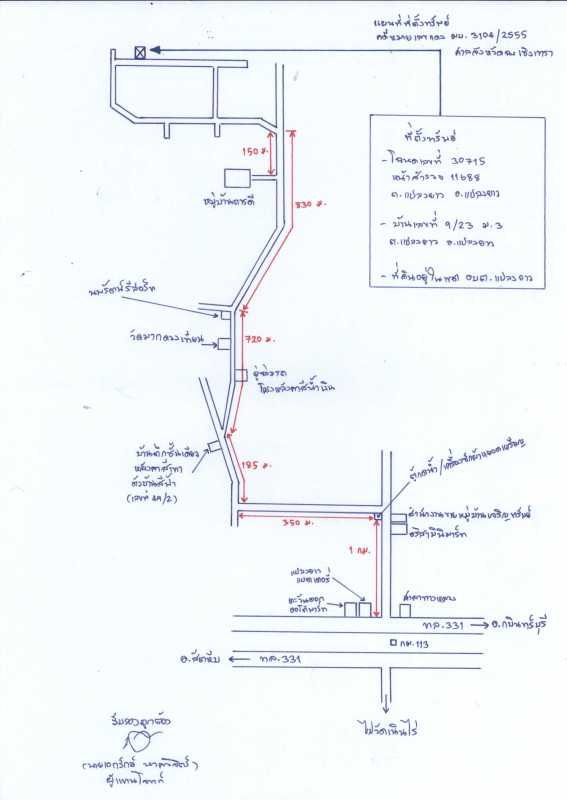 แผนที่ที่ตั้งทรัพย์
คดีหมายเลขแดง ผบ. 3104/2555
ศาลจังหวัดฉะเชิงเทรา
ที่ตั้งทรัพย์
- โฉนดเลขที่ 30715
หน้าสำรวจ 11688
ต.แปลงยาว อ.แปลงยาว
- บ้านเลขที่ 9/23 ม.3
ต.แปลงยาว อ.แปลงยาว
- ที่ดินอยู่ในเขต อบต.แปลงยาว
150 ม.
830 ม.
หมู่บ้านดารดี
นพรัตน์รีสอร์ท
วัดมาบดวงเทียน
720 ม.
อู่ซ่อมรถ
โครงหลังคาสีน้ำเงิน
บ้านตึกชั้นเดียว
หลังคาสีเทา
ตัวบ้านสีฟ้า
185 ม.
ตู้กดน้ำ/เครื่องซักผ้าหยอดเหรียญ
350 ม.
สำนักงานขายหมู่บ้านเจริญทรัพย์
อริสามินิมาร์ท
1 กม.
แปลงยาว
แบตเตอรี่
ตะวันออก
ออโต้พาร์ท
ศาลาทางหลวง
ทล.331
อ.กบินทร์บุรี
กม.113
อ.สัตหีบ
ทล.331
ไปวัดเนินไร่
รับรองถูกต้อง
ผู้แทนโจทก์